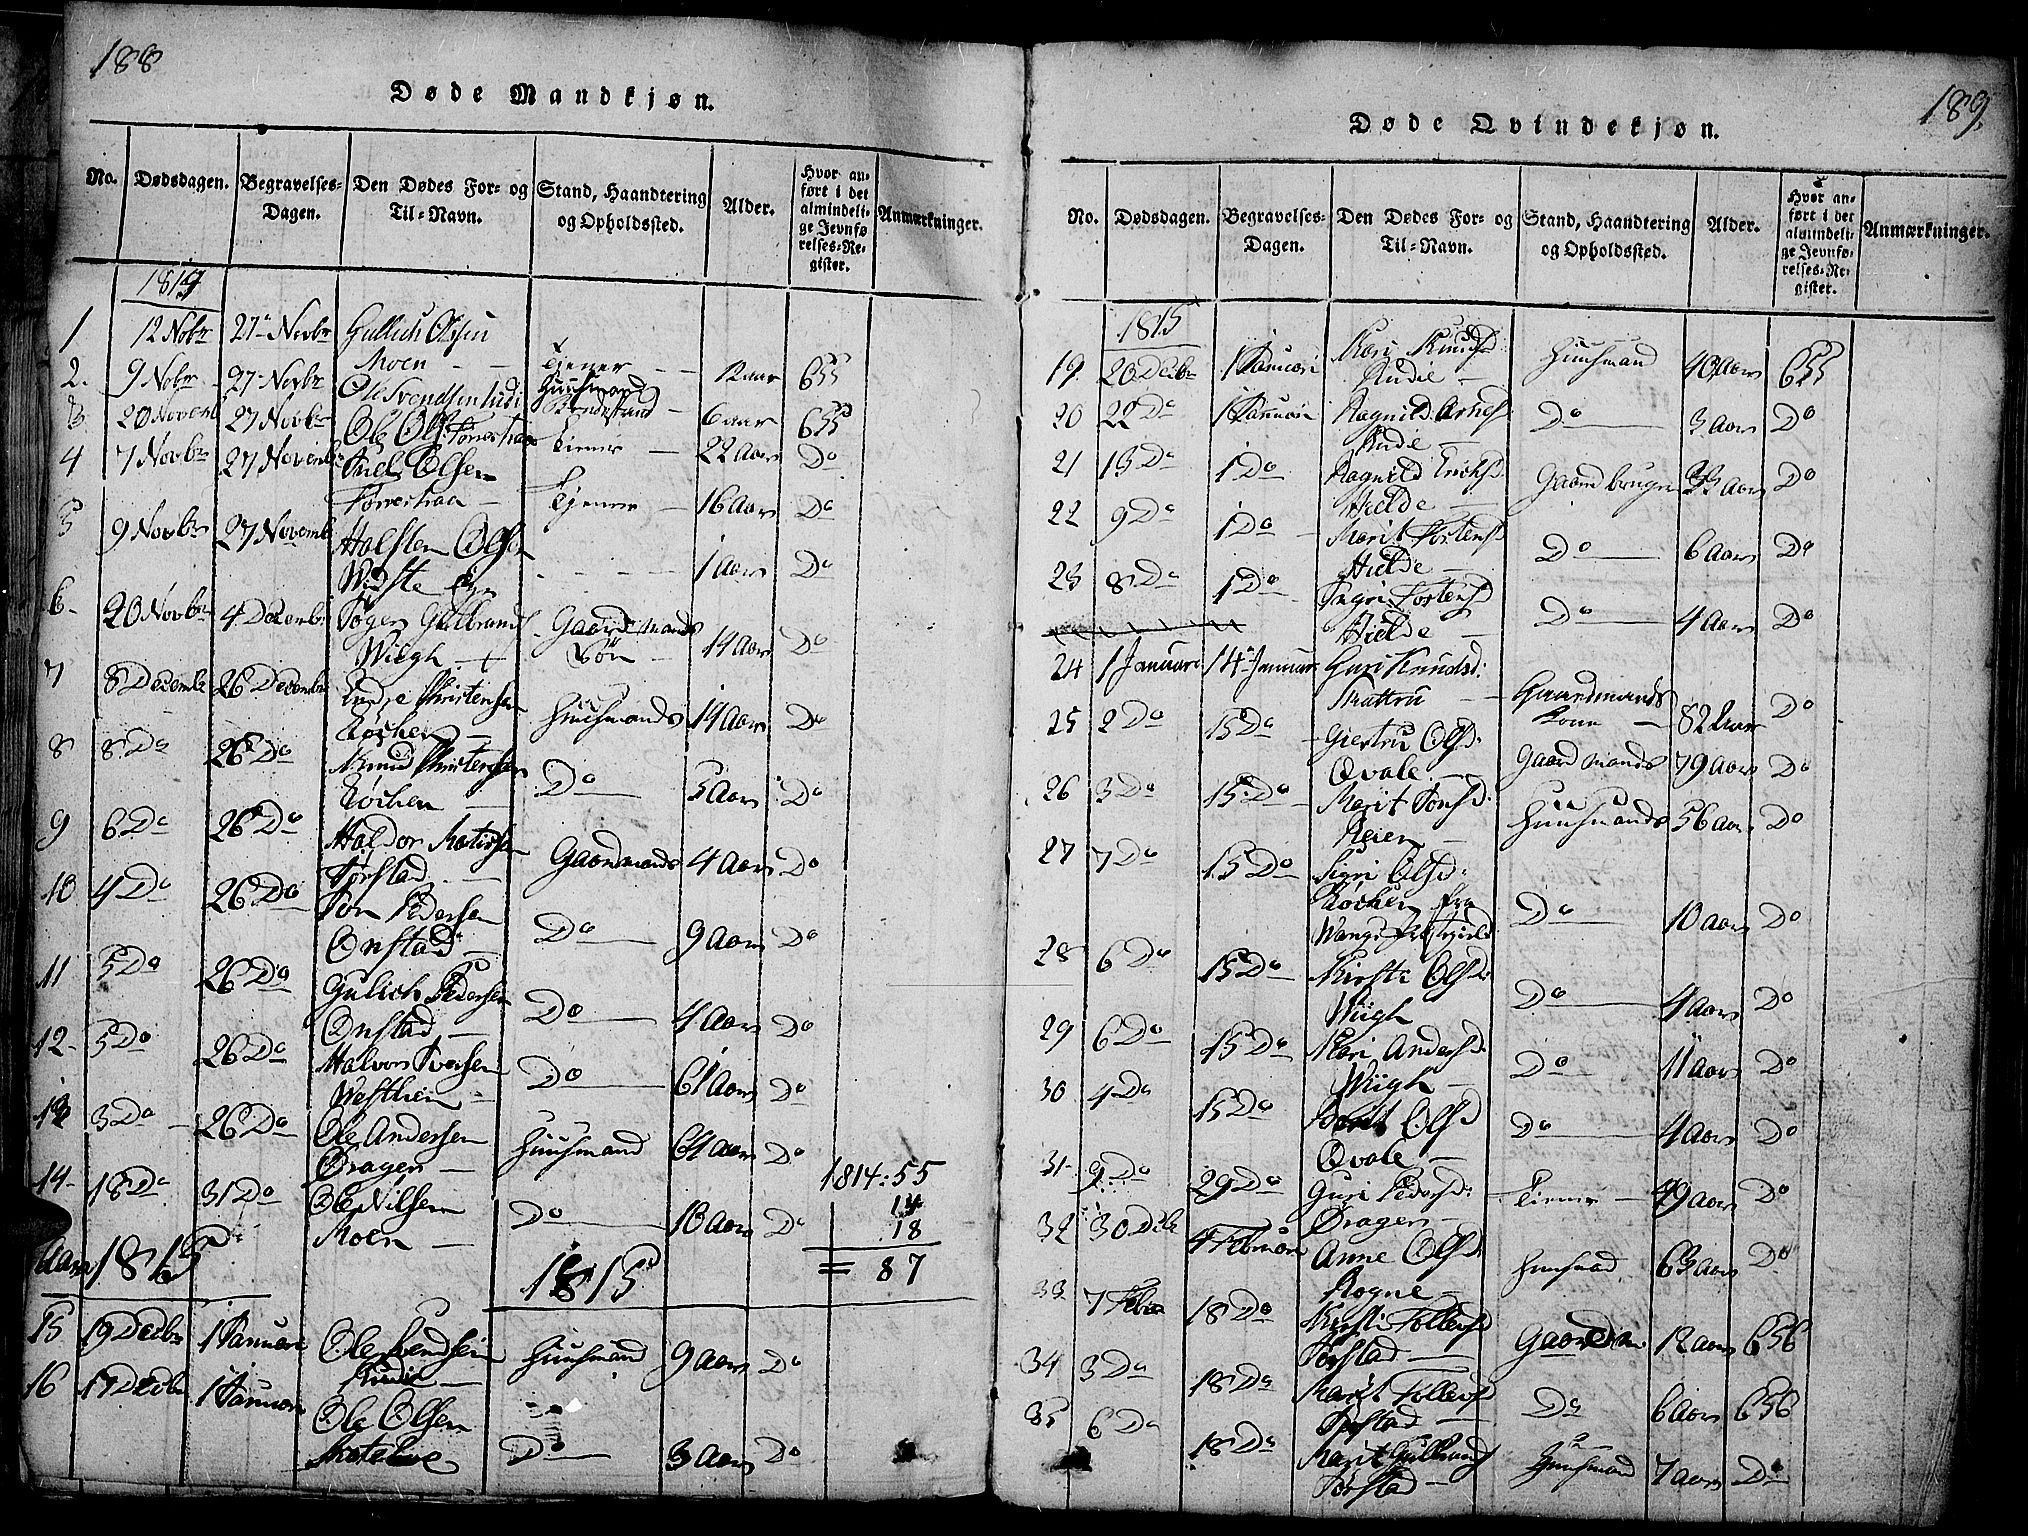 188
Døde Mandkjøn.
No. Dødsdagen. Begravelses-Dagen. Den Dødes For- og Til-Navn. Stand, Haandtering og Opholdssted. Alder. Hvor anført i det almindelige Jevnførelses-Register. Anmærkninger.
1814
1 12 Nobr 27 Novbr Gullich Olsen
Moen Tjener 12 aar 655
2. 9 Nobr 27 Novbr Ole Svendsen Huusmand
6 aar 655
3 20 Novemb 27 Novbr Ole Ols: Tiener 22 Aars Do
4 7 Novbr 27 Novemb Juel Olsen
Tjener 16 Aars Do
5 9 Novbr 27 Novemb Halsten Olsen
1 Aars Do
6 20 Novbr 4 Decemb Gulbrands Gaardmands
Wiigh Søn 14 Aars Do
7 8 Decemb 26 Decemb Endre Christensen
Huusmands 14 Aars Do
8 8 Do 26 Do Knud Christensen
Do 5 Aars Do
9 6 Do 26 Do Haldor
Tørstad Gaardmands 4 Aars Do
10 4 Do 26 Do Tor Pedersen
Onstad Do 9 Aars Do
11 5 Do 26 Do Gulich Pedersen
Onstad Do 4 Aars Do
12 5 Do 26 Do Halvor Iversen
Do 61 Aars Do
13 3 Do 26 Do Ole Andersen
Dragen Huusmand 64 Aars Do
14 18 Do 31 Do Ole Nilsen
Moen Do 10 Aars Do
1814: 55
14
18
= 87
Aar 1815 1815
15 19 Decbr 1 Januari Ole Svendsen
Rudie Huusmand 9 Aars Do
16 17 Decbr 1 Januari Ole Olsen
Do 3 Aars Do
189
Døde Qvindekjøn.
No. Dødsdagen. Begravelses-Dagen. Den Dødes For- og Til-Navn. Stand, Haandtering og Opholdssted. Alder. Hvor anført i det almindelige Jevnførelses-Register. Anmærkninger.
1815
19 20 Decbr 1 Januari Kari Knudsd:
Rudie Huusmand Aars 655
20 22 Do 1 Januari Ragnild Arnesd:
Rudie Do 3 Aars Do
21 13 Do 1 Do Ragnild Erichsd:
Hielde Gaardbruger Aars Do
22 9 Do 1 Do Marit Tostensd
Hielde Do 6 Aars Do
23 8 Do 1 Do Ingri Tostensd
Hielde Do 4 Aars Do
24 1 Januari 14 Januar Guri Knudsd:
Skattru Gaardmands Kone 82 aar Do
25 2 Do 15 Do Giertru Olsd:
Qvale Gaardmands 79 Aars Do
26 3 Do 15 Do Marit Jonsd:
Reien Huusmands 56 Aars Do
27 7 Do 15 Do Sigri Olsd:
fra
Do 10 Aars Do
28 6 Do 15 Do Kirsti Olsd:
Wiigh Do 4 Aars Do
29 6 Do 15 Do Kari Andersd:
Wiigh Do 11 Aars Do
30 4 Do 15 Do Berit Olsd
Qvale Do 4 Aars Do
31 9 Do 29 Do Guri Pedersd:
Dragen Tiener 49 Aars Do
32 30 Decb 4 Februari Anne Olsd:
Rogne Huusmand 63 Aars Do
33 7 Febr 18 Do Kirsti Tollevsd
Tørstad 12 Aars 656
34 3 Do 18 Do Marit Tollevsd
Tørstad Do 6 Aars 656
35 6 Do 18 Do Marit Gulbrandsd
Tørstad Huusmand 7 Aars Do